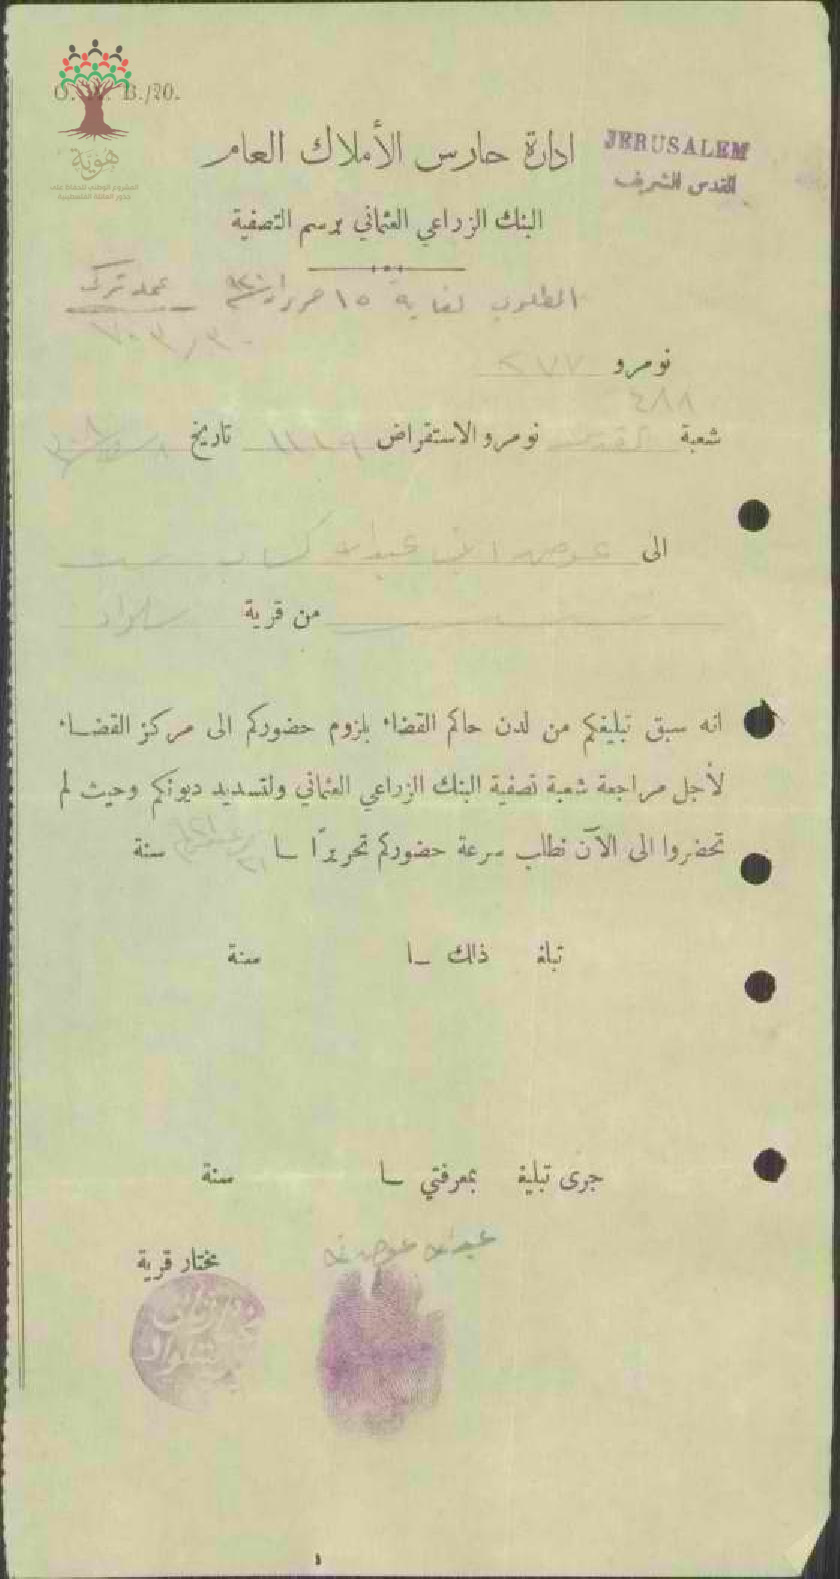 O. A. B./20.
هوية
المشروع الوطني للحفاظ على
جذور العائلة الفلسطينية
JERUSALEM
القدس الشريف
ادارة حارس الأملاك العام
البنك الزراعي العثماني برسم التصفية
المطلوب لغاية ١٥ عملة ترك
نومرو ٢٧٧
٤٨٨
شعبة القدس نومرو الاستقراض ١١١٩ تاريخ
الى عبدالله
من قرية سلواد
انه سبق تبليغكم من لدن حاكم القضاء بلزوم حضوركم الى مركز القضاء
لأجل مراجعة شعبة تصفية البنك الزراعي العثماني ولتسديد ديونكم وحيث لم
تحضروا الى الآن نطلب سرعة حضوركم تحريرًا سـا سنة
تبلغ ذلك ـا سنة
جرى تبليغ بمعرفتي سـا سنة
عبدالله
مختار قرية